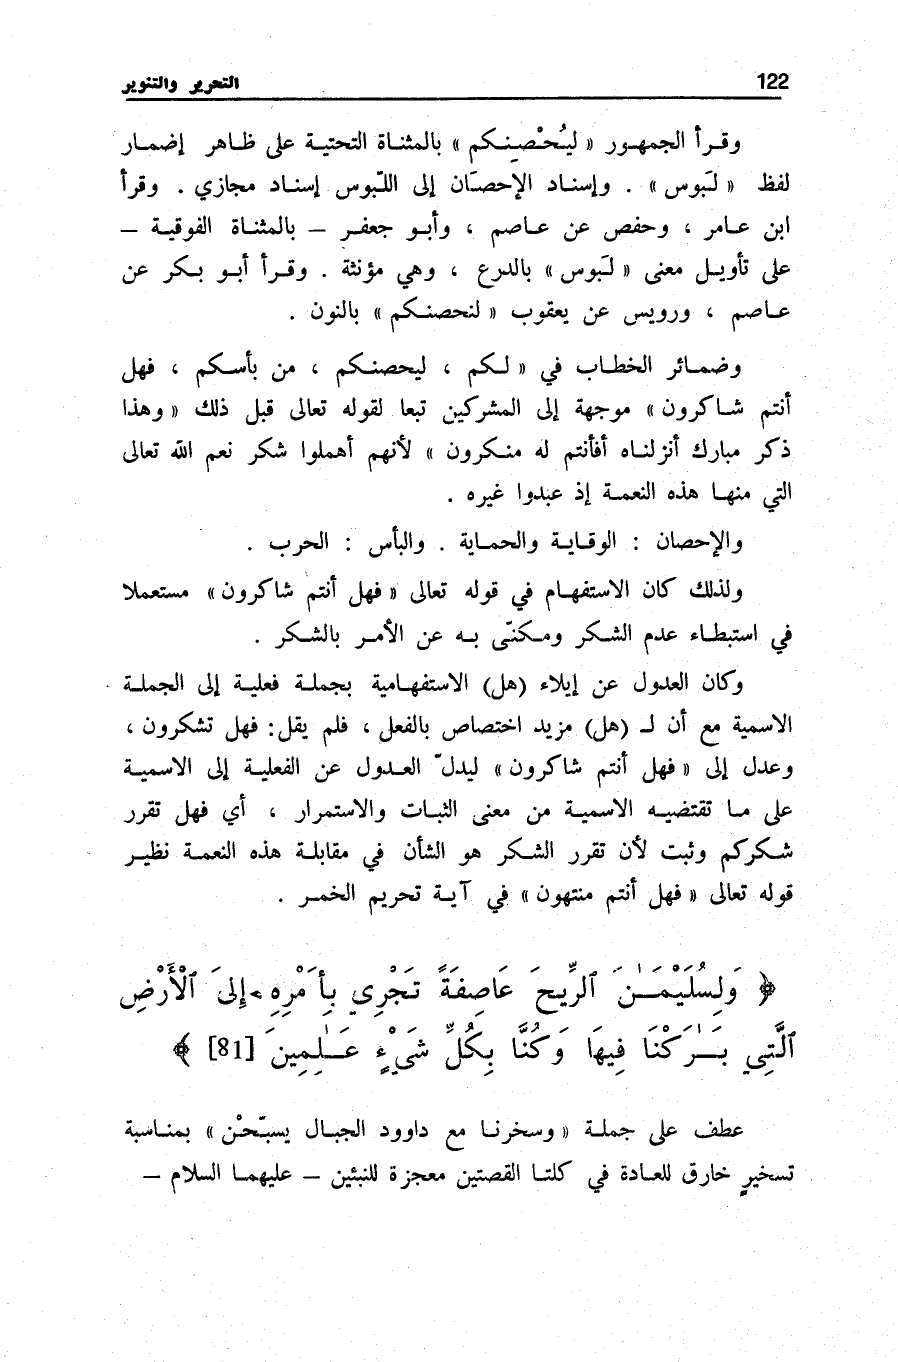 122
التحرير والتنوير
وقرأ الجمهور « ليُحْصِنكم » بالمثناة التحتية على ظاهر إضمار
لفظ « لَبوس » . وإسناد الإحصان إلى اللّبوس إسناد مجازي . وقرأ
ابن عامر ، وحفص عن عاصم ، وأبو جعفر – بالمثناة الفوقية –
على تأويل معنى « لَبوس » بالدرع ، وهي مؤنثة . وقرأ أبو بكر عن
عاصم ، ورويس عن يعقوب « لنحصنكم » بالنون .
وضمائر الخطاب في « لكم ، ليحصنكم ، من بأسكم ، فهل
أنتم شاكرون » موجهة إلى المشركين تبعا لقوله تعالى قبل ذلك « وهذا
ذكر مبارك أنزلناه أفأنتم له منكرون » لأنهم أهملوا شكر نعم الله تعالى
التي منها هذه النعمة إذ عبدوا غيره .
والإحصان : الوقاية والحماية . والبأس : الحرب .
ولذلك كان الاستفهام في قوله تعالى « فهل أنتم شاكرون » مستعملا
في استبطاء عدم الشكر ومكنّى به عن الأمر بالشكر .
وكان العدول عن إيلاء (هل) الاستفهامية بجملة فعلية إلى الجملة
الاسمية مع أن لـ (هل) مزيد اختصاص بالفعل ، فلم يقل: فهل تشكرون ،
وعدل إلى « فهل أنتم شاكرون » ليدلّ العدول عن الفعلية إلى الاسمية
على ما تقتضيه الاسمية من معنى الثبات والاستمرار ، أي فهل تقرر
شكركم وثبت لأن تقرر الشكر هو الشأن في مقابلة هذه النعمة نظير
قوله تعالى « فهل أنتم منتهون » في آية تحريم الخمر .
﴿ وَلِسُلَيْمَـٰنَ ٱلرِّيحَ عَاصِفَةً تَجْرِي بِأَمْرِهِۦ إِلَى ٱلْأَرْضِ
ٱلَّتِي بَـٰرَكْنَا فِيهَا وَكُنَّا بِكُلِّ شَيْءٍ عَـٰلِمِينَ [81] ﴾
عطف على جملة « وسخرنا مع داوود الجبال يسبّحْن » بمناسبة
تسخيرٍ خارق للعادة في كلتا القصتين معجزة للنبئين – عليهما السلام –